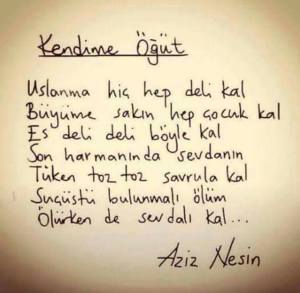 Kendime Öğüt
Uslanma hiç hep deli kal
Büyüme sakın hep çocuk kal
Es deli deli böyle kal
Son harmanında sevdanın
Tüken toz toz savrula kal
Suçüstü bulunmalı ölüm
Ölürken de sevdalı kal...
Aziz Nesin